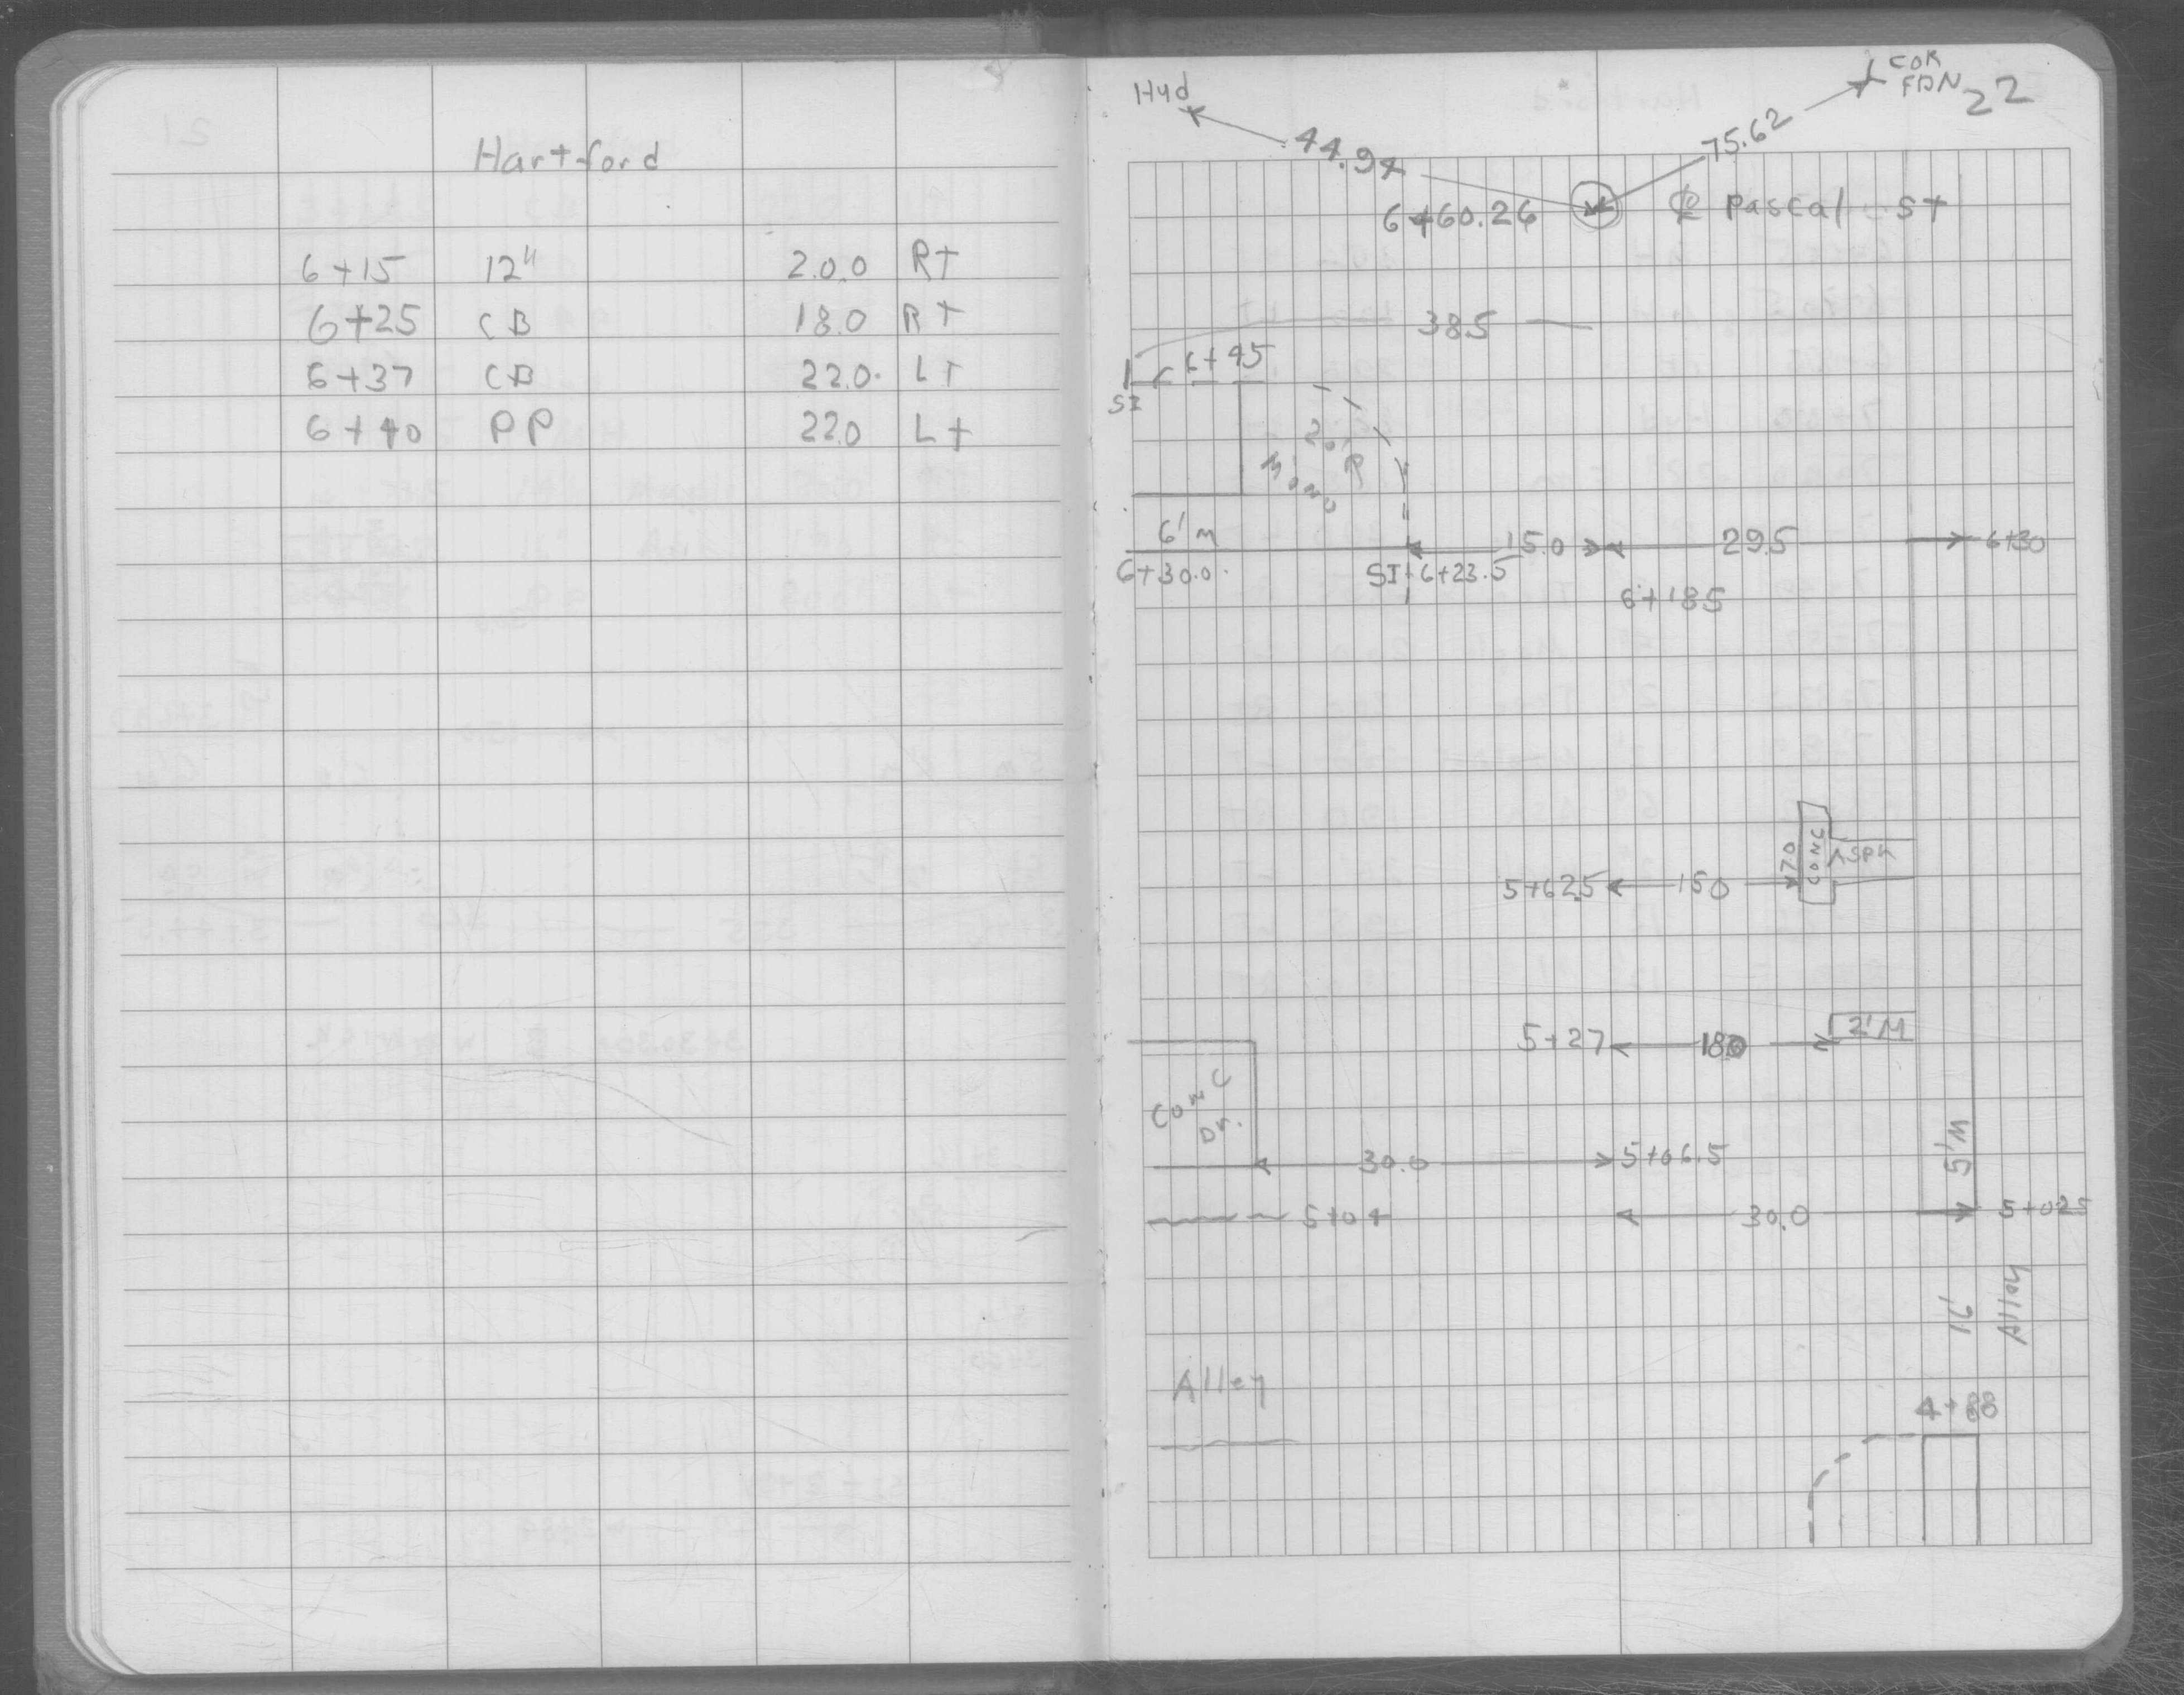 Hartford
6+15 12" 20.0 Rt
6+25 CB 18.0 Rt
6+37 CB 22.0 Lt
6+40 PP 22.0 Lt
22
Hyd
COR
FDN
44.94
75.62
6+60.26 ℄ Pascal St
38.5
6+45
SI
20' R
Mono
6' M
15.0 29.5 6+30
6+30.0 SI 6+23.5
6+18.5
17.0 CONC ASPh
5+62.5 15.0
2'M
5+27 18.0
CONC
Dr.
5'M
30.0 5+06.5
5+04 30.0 5+02.5
16'
Alley
Alley
4+88